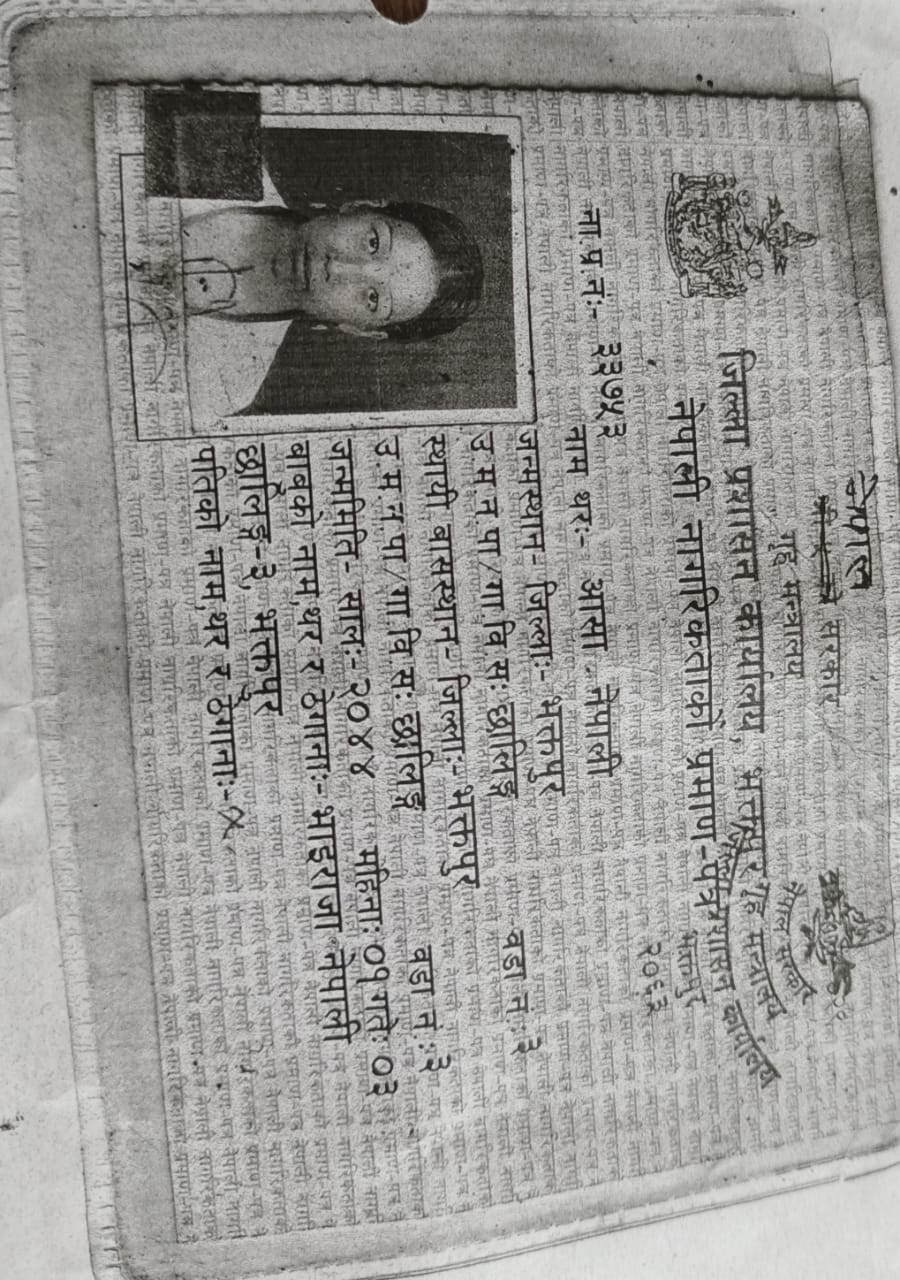 नेपाल
सरकार
गृह मन्त्रालय
जिल्ला प्रशासन कार्यालय, भक्तपुर
नेपाली नागरिकताको प्रमाण-पत्र
नेपाल सरकार
गृह मन्त्रालय
जिल्ला प्रशासन कार्यालय
भक्तपुर
२०६३
ना.प्र.नं:- ३३७५३
नाम थर:- आसा नेपाली
जन्मस्थान- जिल्ला:- भक्तपुर
उ.म.न.पा/गा.वि.स: छालिङ्ग वडा नं.: ३
स्थायी बासस्थान- जिल्ला:- भक्तपुर
उ.म.न.पा/गा.वि.स: छालिङ्ग वडा नं.: ३
जन्ममिति- साल:- २०४४ महिना: ०१ गते: ०३
बाबुको नाम,थर र ठेगाना:- भाइराजा नेपाली
छालिङ्ग-३, भक्तपुर
पतिको नाम,थर र ठेगाना:-